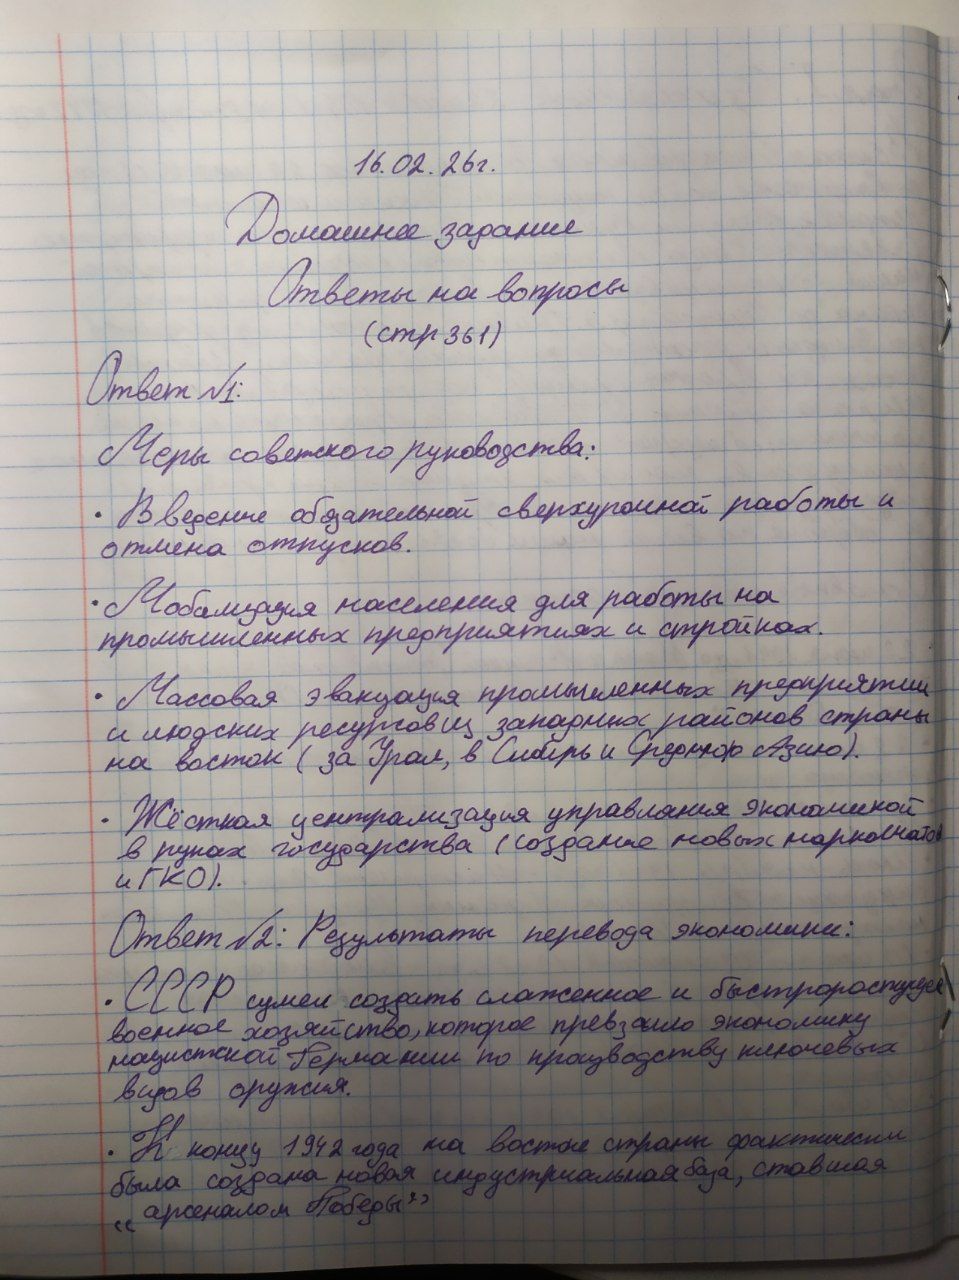 16.02.26г.
Домашнее задание
Ответы на вопросы
(стр 361)
Ответ №1:
Меры советского руководства:
• Введение обязательной сверхурочной работы и
отмена отпусков.
• Мобализация населения для работы на
промышленных предприятиях и стройках.
• Массовая эвакуация промышленных предприятий
и людских ресурсов из западных районов страны
на восток (за Урал, в Сибирь и Среднюю Азию).
• Жёсткая централизация управления экономикой
в руках государства (создание новых наркоматов
и ГКО).
Ответ №2: Результаты перевода экономики:
• СССР сумел создать слаженное и быстроростущее
военное хозяйство, которое превзашло экономику
нацистской Германии по производству ключевых
видов оружия.
• К концу 1942 года на востоке страны фактически
была создана новая индустриальная база, ставшая
"арсеналом Победы"